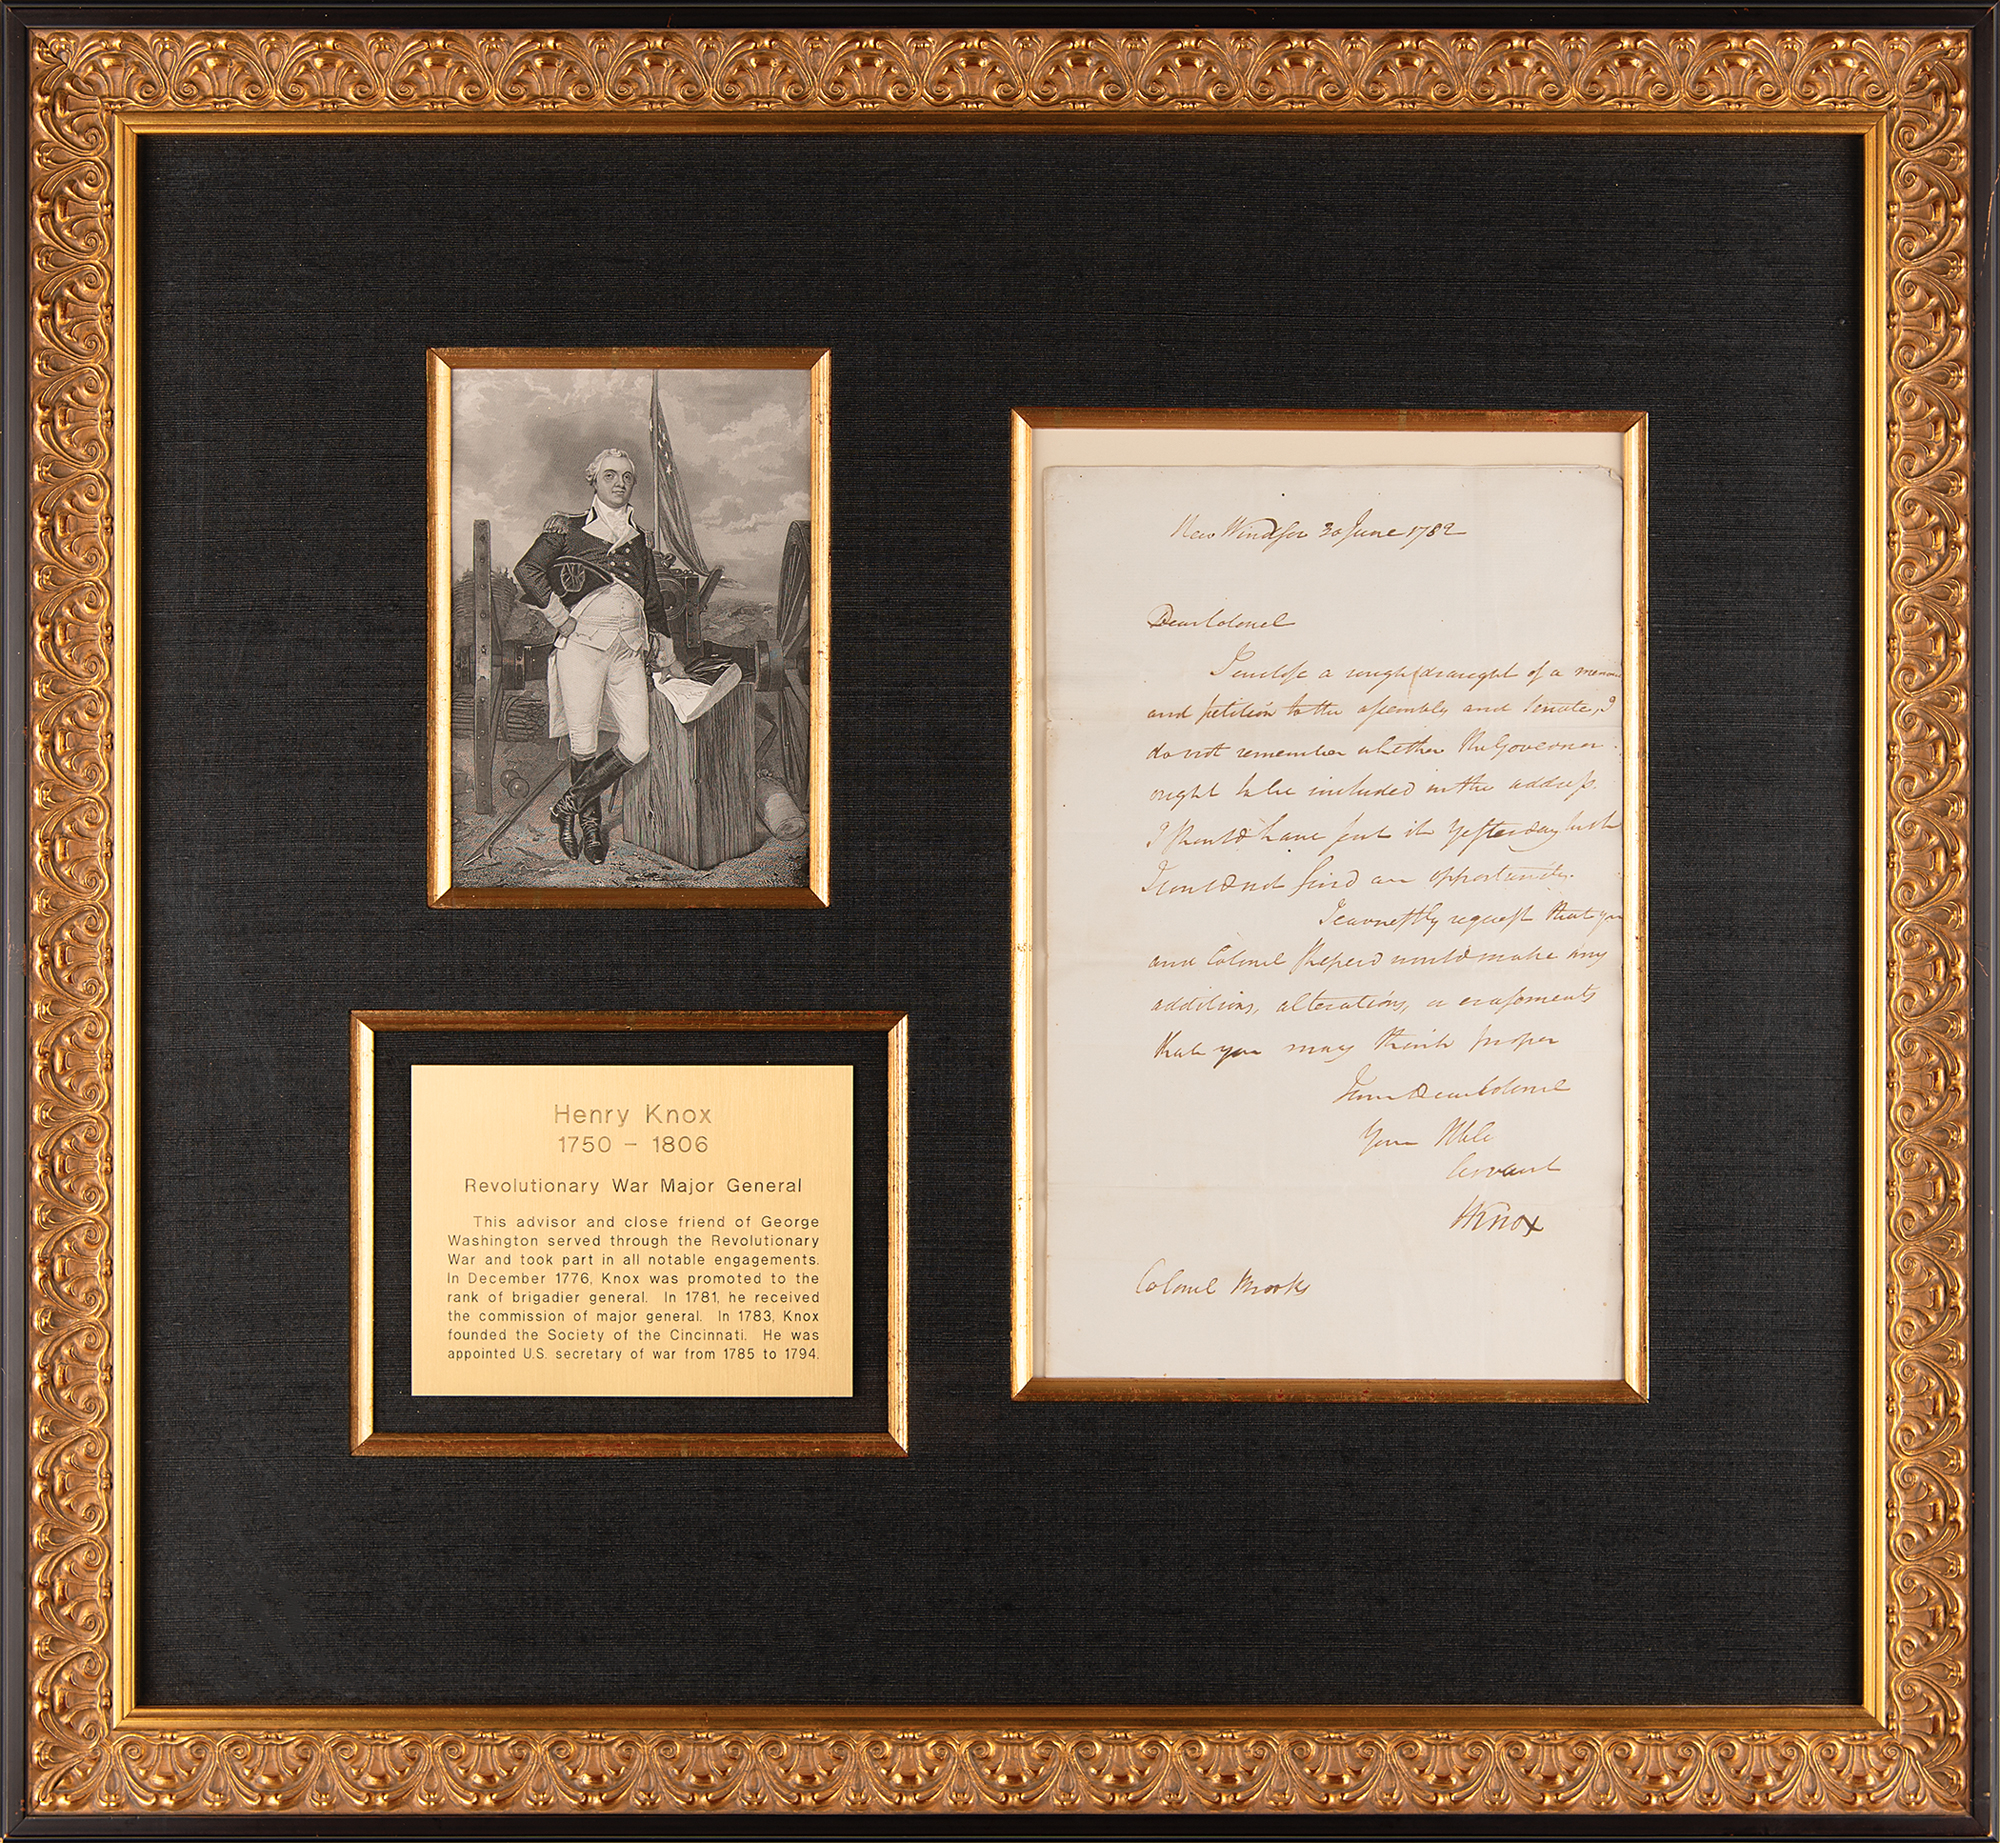 Henry Knox
1750 – 1806
Revolutionary War Major General
This advisor and close friend of George
Washington served through the Revolutionary
War and took part in all notable engagements.
In December 1776, Knox was promoted to the
rank of brigadier general. In 1781, he received
the commission of major general. In 1783, Knox
founded the Society of the Cincinnati. He was
appointed U.S. secretary of war from 1785 to 1794.
New Windsor 30 June 1782
Dear Colonel
I enclose a rough draught of a
and petition to the assembly and Senate, I
do not remember whether the Governor
ought to be included in the address.
I should have sent it yesterday but
I could not find an opportunity.
I earnestly request that you
and Colonel Sheperd would make any
additions, alterations, or erasements
that you may think proper
I am Dear Colonel
Your
servant
HKnox
Colonel Brooks